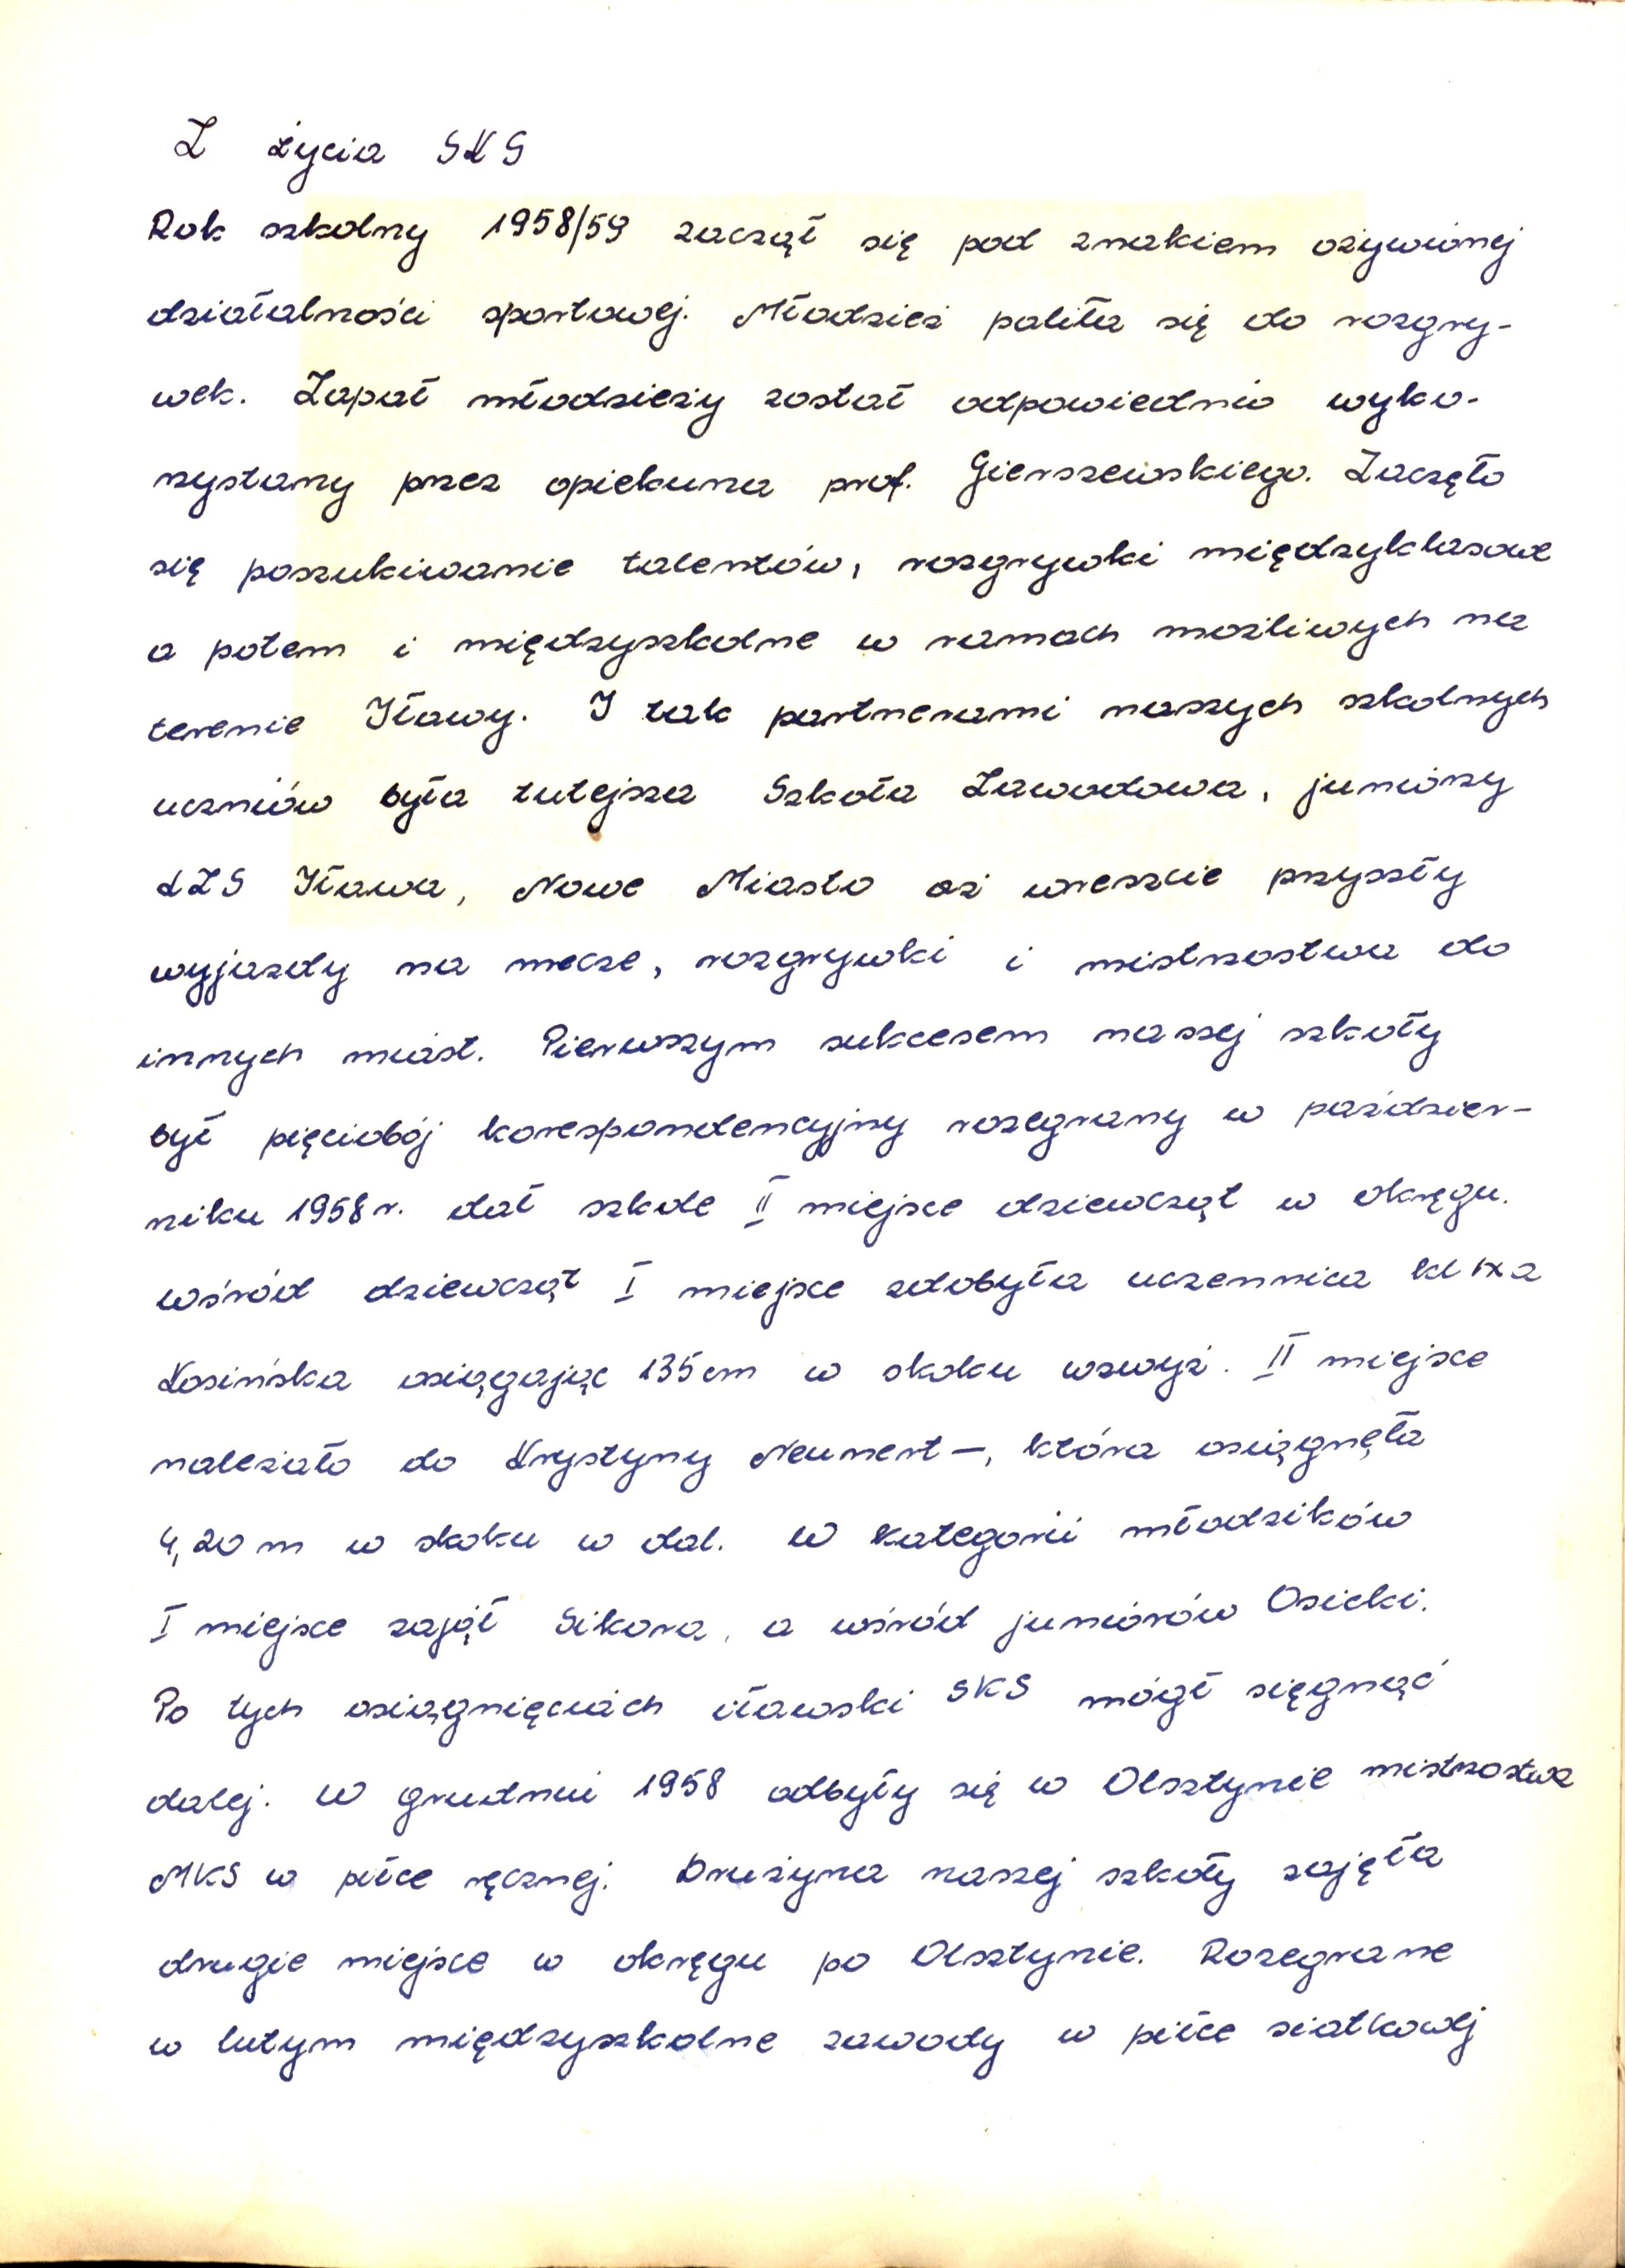 Z życia SKS
Rok szkolny 1958/59 zaczął się pod znakiem ożywionej
działalności sportowej. Młodzież paliła się do rozgry-
wek. Zapał młodzieży został odpowiednio wyko-
rzystany przez opiekuna prof. Gierszewskiego. Zaczęło
się poszukiwanie talentów, rozgrywki międzyklasowe
a potem i międzyszkolne w ramach możliwych na
terenie Iławy. I tak partnerami naszych szkolnych
uczniów była tutejsza Szkoła Zawodowa, juniorzy
LZS Iława, Nowe Miasto aż wreszcie przyszły
wyjazdy na mecze, rozgrywki i mistrzostwa do
innych miast. Pierwszym sukcesem naszej szkoły
był pięciobój korespondencyjny rozegrany w paździer-
niku 1958 r. dał szkole II miejsce dziewcząt w okręgu.
wśród dziewcząt I miejsce zdobyła uczennica kl IXa
Kosińska osiągając 135 cm w skoku wzwyż. II miejsce
należało do Krystyny Neunert –, która osiągnęła
4,20 m w skoku w dal. W kategorii młodzików
I miejsce zajął Sikora, a wśród juniorów Osicki.
Po tych osiągnięciach iławski SKS mógł sięgnąć
dalej. W grudniu 1958 odbyły się w Olsztynie mistrzostwa
MKS w piłce ręcznej. Drużyna naszej szkoły zajęła
drugie miejsce w okręgu po Olsztynie. Rozegrane
w lutym międzyszkolne zawody w piłce siatkowej